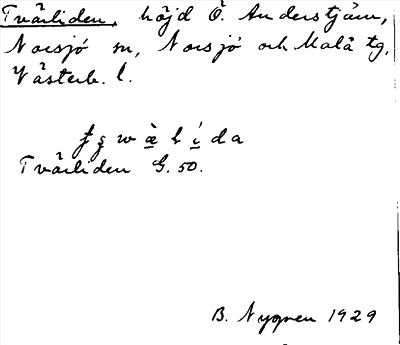 Tvärliden, höjd Ö. Anderstjärn,
Norsjö sn, Norsjö och Malå tg,
Västerb. l.
Tvärliden G. 50.
B. Nygren 1929